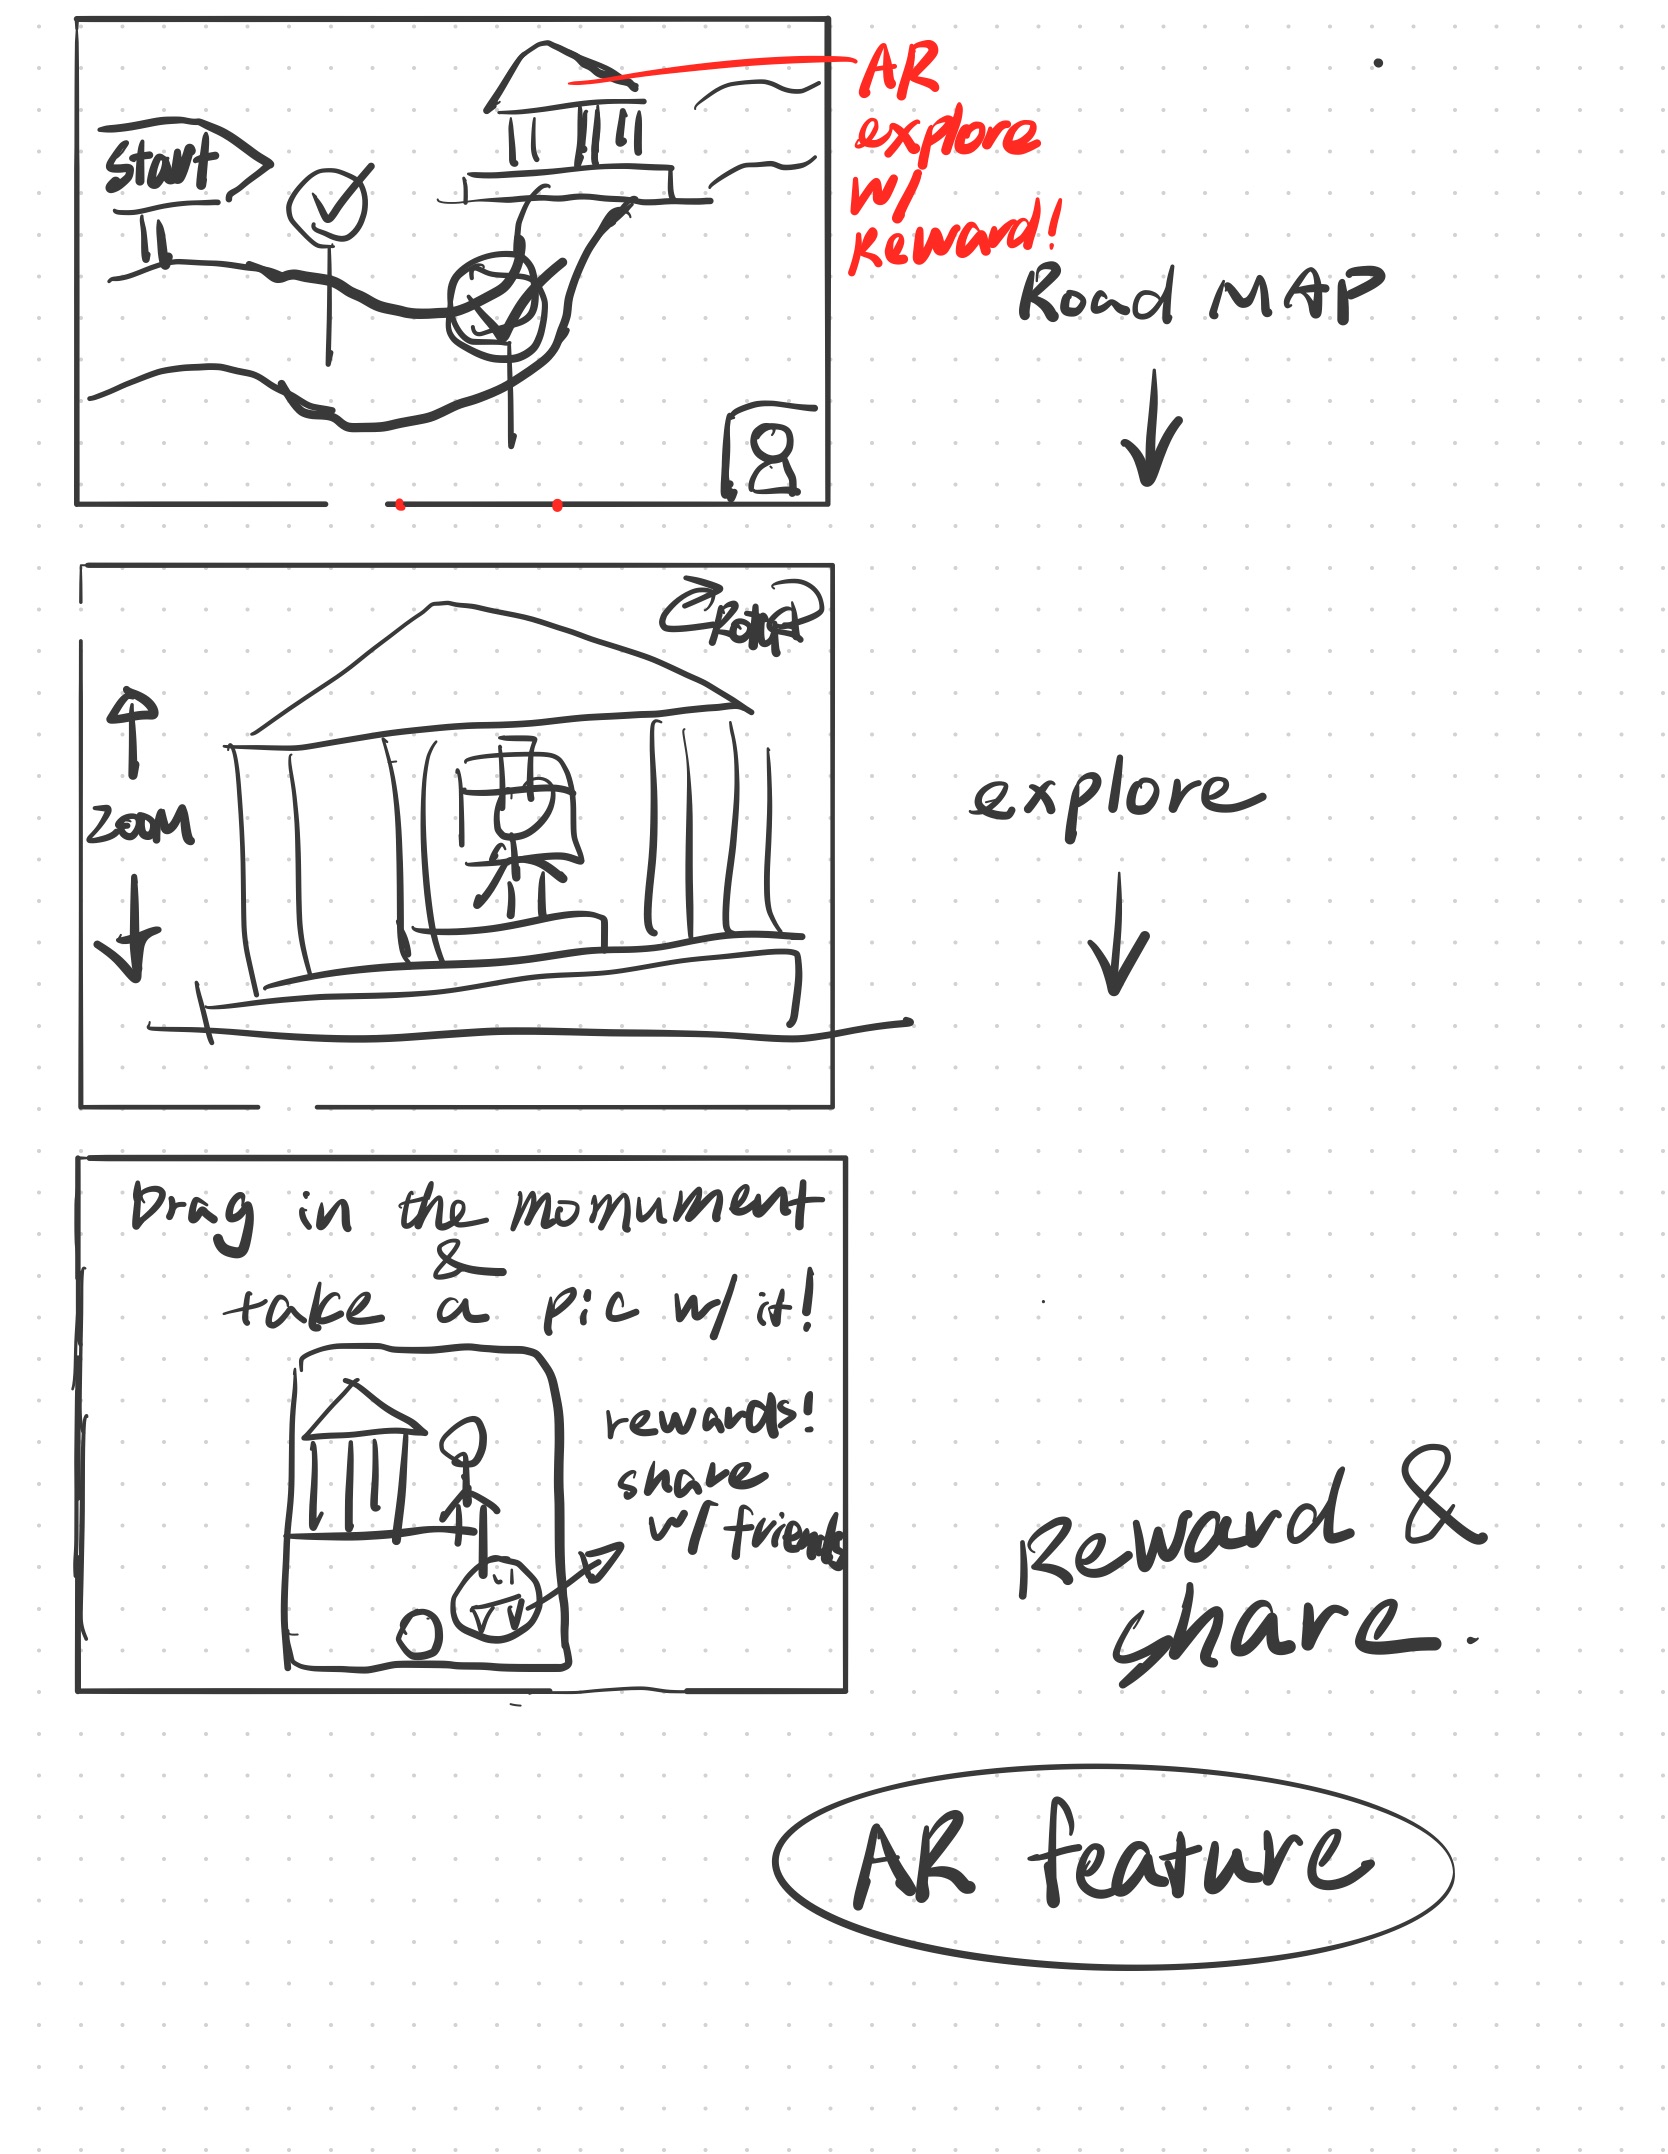 Start
AR
explore
w/
Reward!
Road MAP
Rotat
ZOOM
explore
Drag in the monument
&
take a pic w/ it!
rewards!
share
w/ friends
Reward &
share.
AR feature